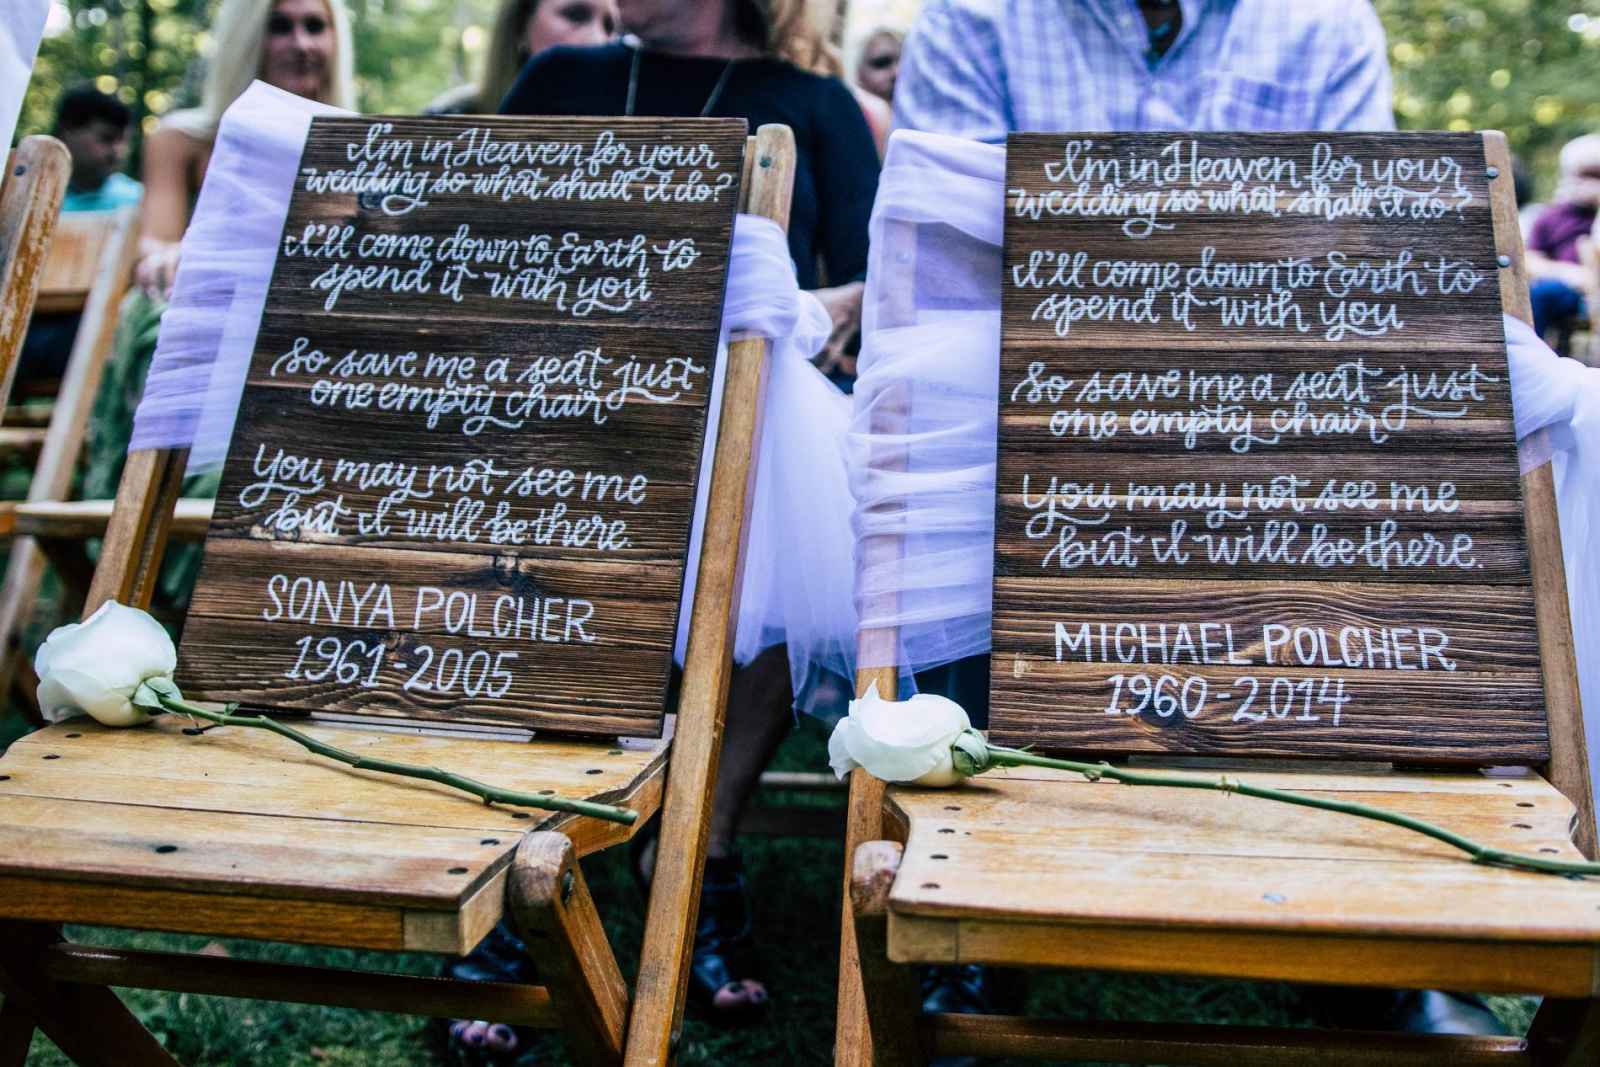 I'm in Heaven for your
wedding so what shall I do?
I'll come down to Earth to
spend it with you
So save me a seat just
one empty chair
You may not see me
but I will be there.
SONYA POLCHER
1961-2005
I'm in Heaven for your
wedding so what shall I do?
I'll come down to Earth to
spend it with you
So save me a seat just
one empty chair
You may not see me
but I will be there.
MICHAEL POLCHER
1960-2014